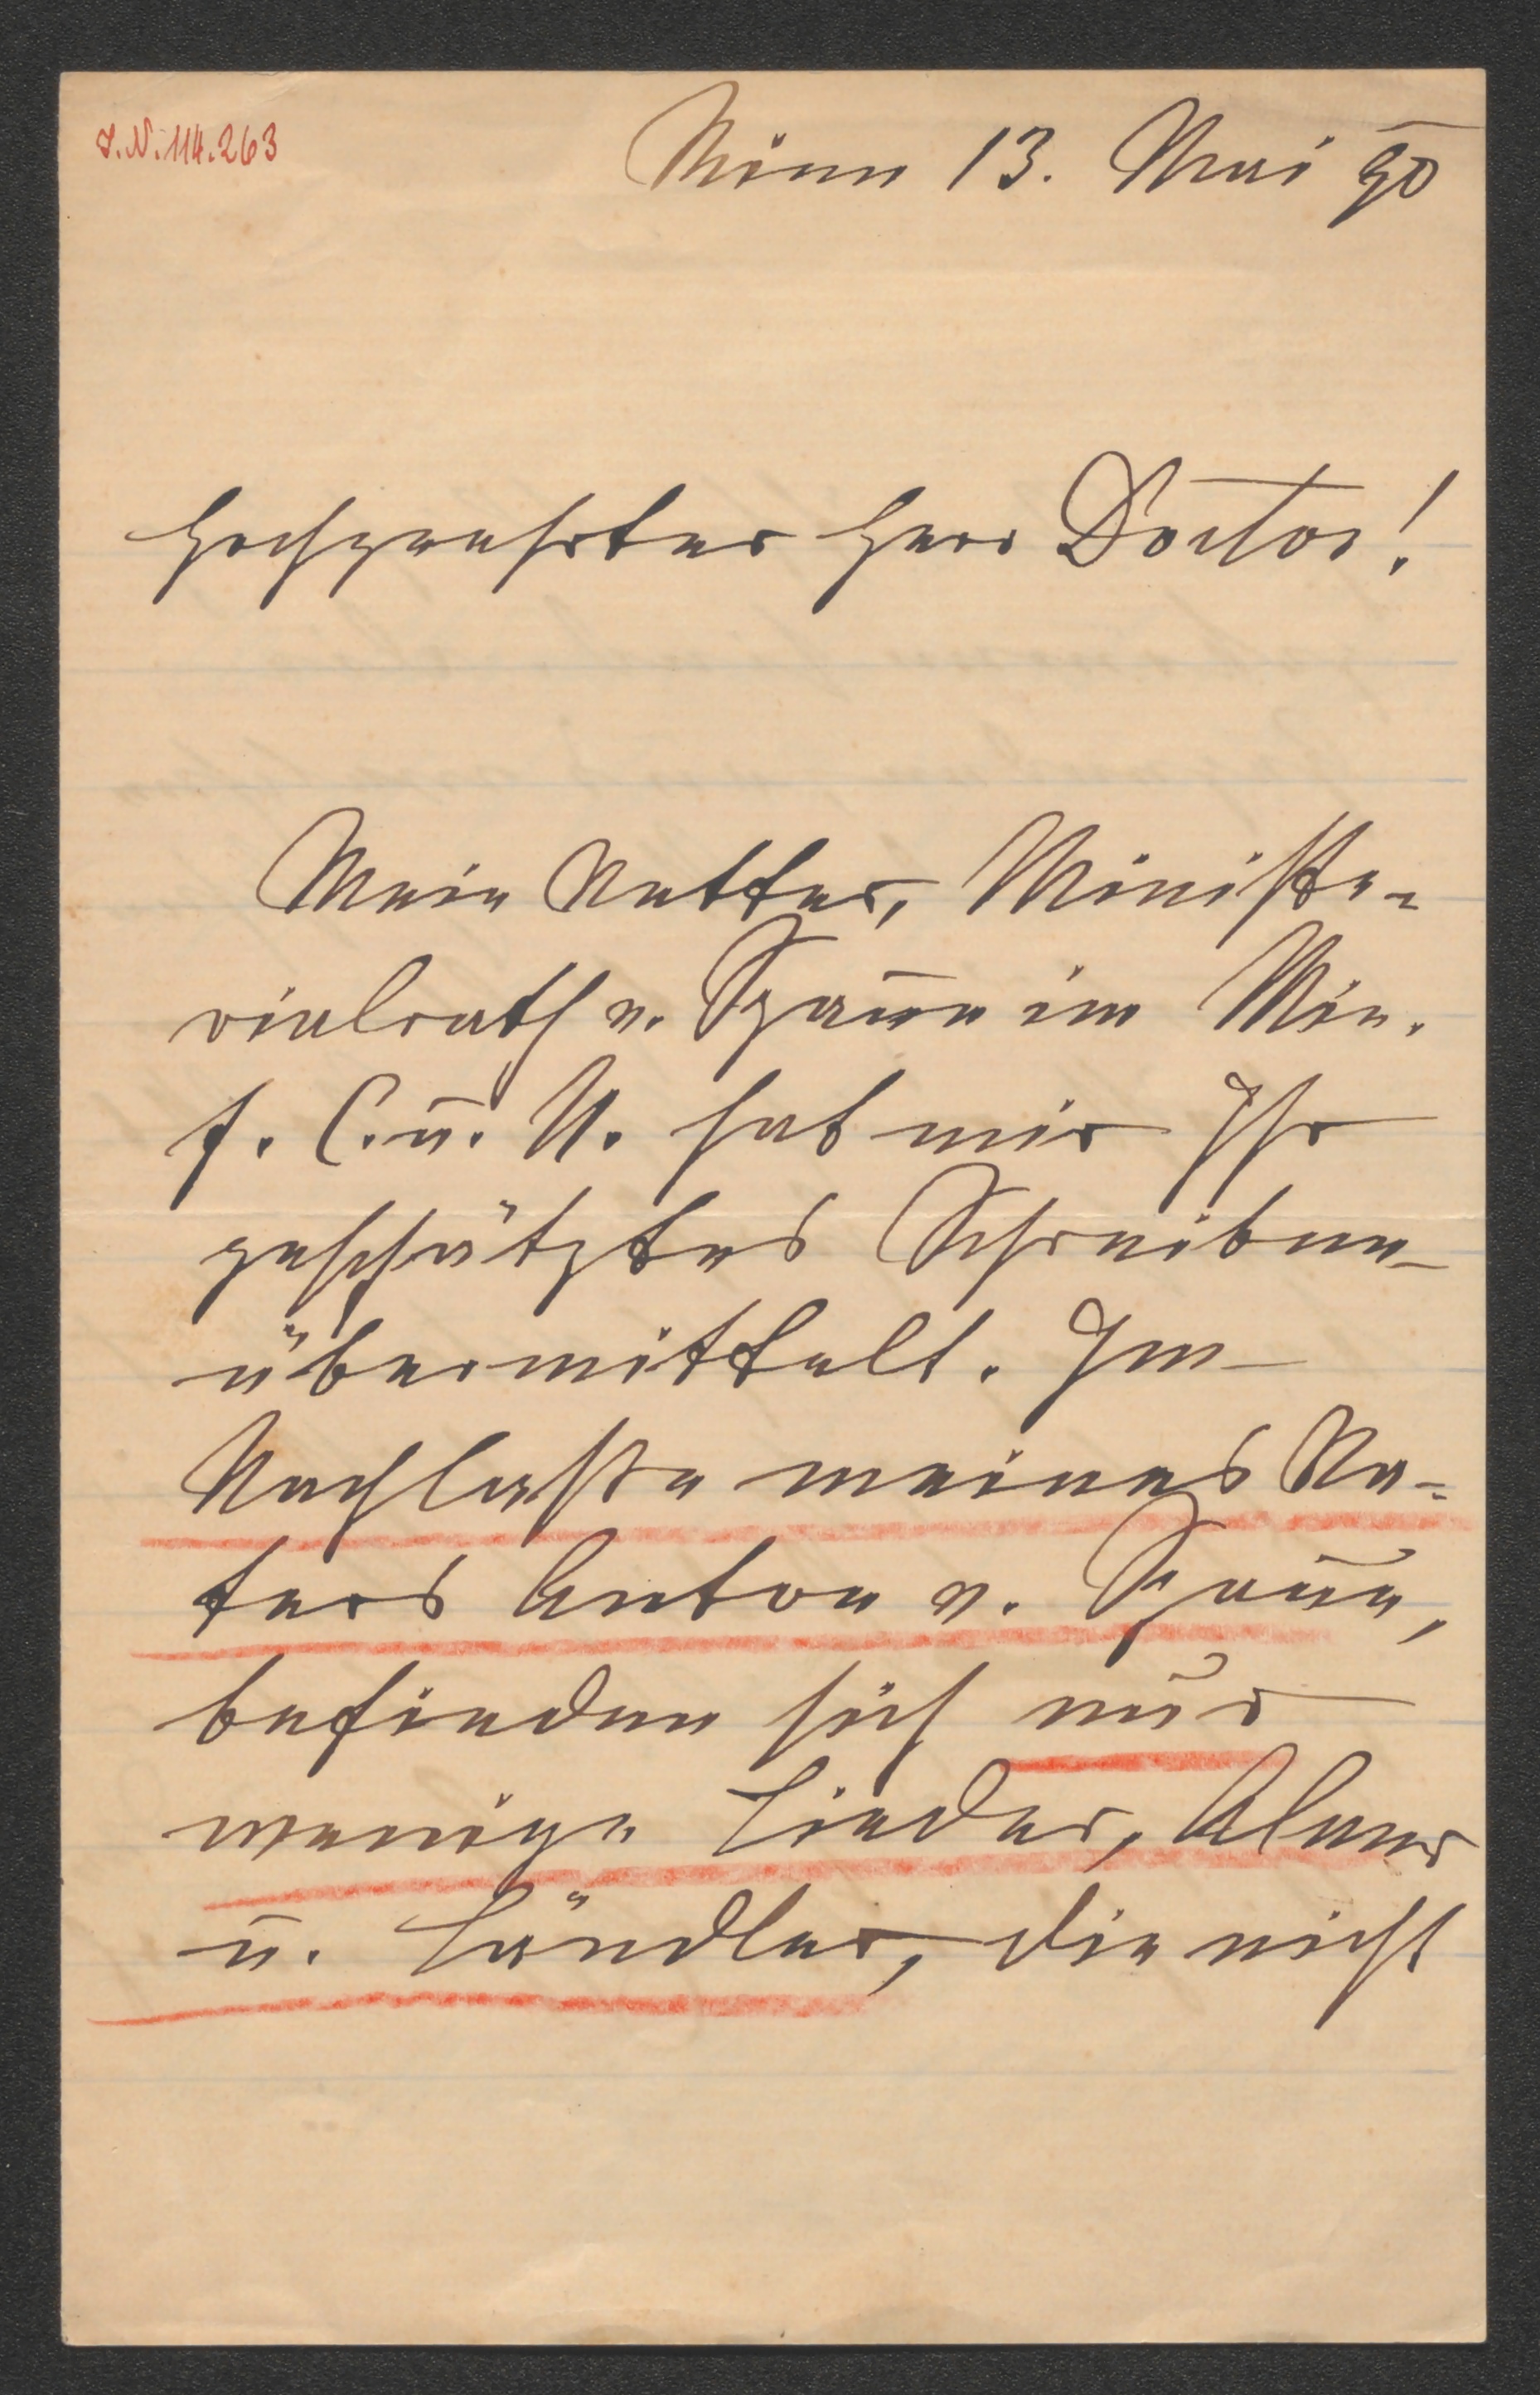 I.N. 114.263
Wien 13. Mai 90
Hochgeehrter Herr Doctor!
Mein Vetter, Ministe-
rialrath v. Spaun im Min.
f. C. u. U. hat mir Ihr
geschätztes Schreiben
übermittelt. Im
Nachlasse meines Va-
ters Anton v. Spaun,
befinden sich nur
wenige Lieder, Almer
u. Ländler, die nicht